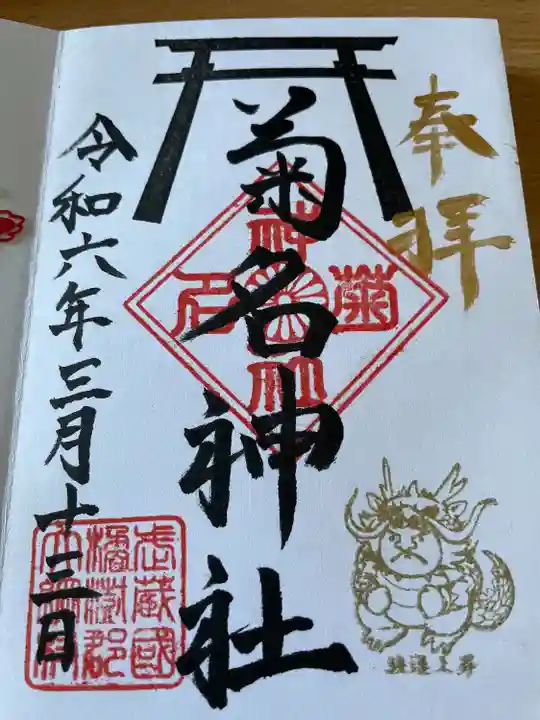 奉拝
菊名神社
菊名神社
令和六年三月十三日
武蔵國
橘樹郡